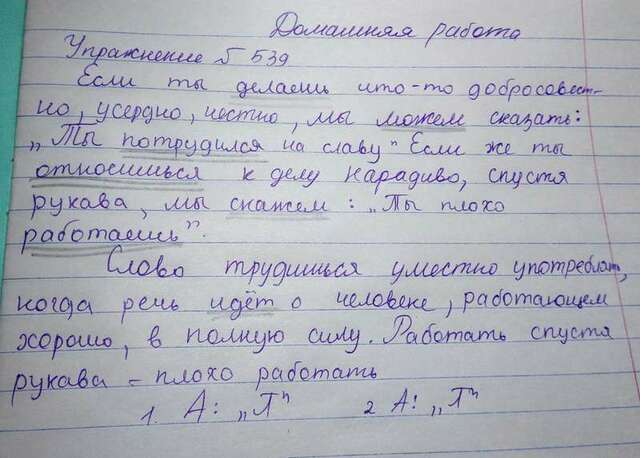 Домашняя работа
Упражнение № 539
Если ты делаешь что-то добросовест-
но, усердно, честно, мы можем сказать:
„Ты потрудился на славу" Если же ты
относишься к делу нарадиво, спустя
рукава, мы скажем: „Ты плохо
работаешь".
Слово трудишься уместно употреблят,
когда речь идёт о человеке, работающем
хорошо, в полную силу. Работать спустя
рукава - плохо работать
1. А: „П" 2 А: „П"